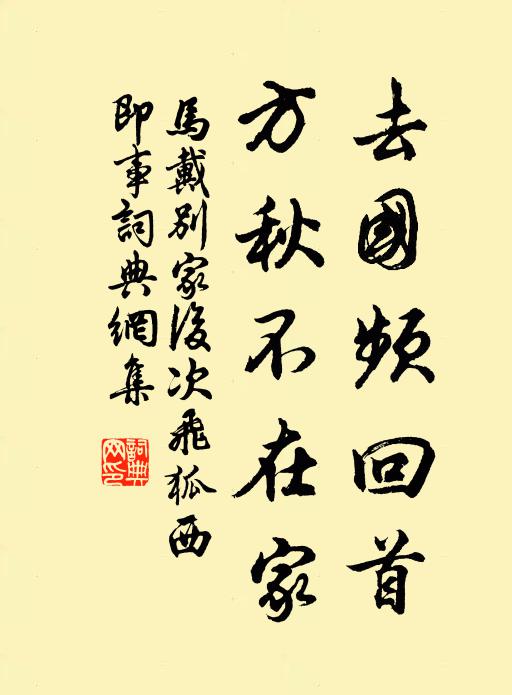 去國頻回首
方秋不在家
馬戴別家後次飛狐西
即事詞典網集
詞典
网印